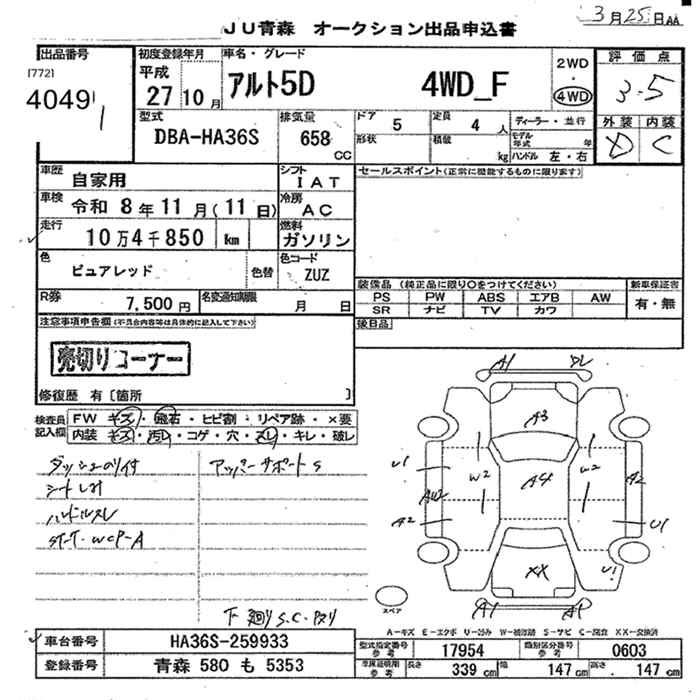 3月25日AA
JU青森 オークション出品申込書
出品番号
[772]
4049
初度登録年月
平成
27 10月
車名・グレード
アルト5D 4WD_F
2WD
・
4WD
評価点
3.5
外装 内装
D C
型式
DBA-HA36S
排気量
658
CC
ドア
5
定員
4 人
ディーラー・並行
形状
積載
kg
モデル年式 年
ハンドル 左・右
車歴
自家用
シフト
IAT
セールスポイント(正常に機能するものに限ります)
車検
令和 8年 11月(11日)
冷房
AC
走行
10万4千850 km
燃料
ガソリン
色
ピュアレッド
色替
色コード
ZUZ
装備品(純正品に限り○をつけてください)
PS PW ABS エアB AW
SR ナビ TV カワ
新車保証書
有・無
R券
7,500円
名変通知期限
月 日
後日品
注意事項申告欄(不具合内容等は具体的に記入して下さい)
売切りコーナー
修復歴 有[箇所 ]
検査員記入欄
FW キズ・飛石・ヒビ割・リペア跡・×要
内装 キズ・汚レ・コゲ・穴・スレ・キレ・破レ
アッパーサポートS
ハンドルスレ
A1
A3
U1
W2
A4
W2
A2
A2
U1
XX
U1
A1
A1
スペア
下廻りS.C・サビ
A-キズ E-エクボ U-凹み W-補修跡 S-サビ C-腐食 XX-交換済
車台番号
HA36S-259933
型式指定番号
参考
17954
類別区分番号
参考
0603
登録番号
青森 580 も 5353
車庫証明用
参考
長さ
339 cm
幅
147 cm
高さ
147 cm